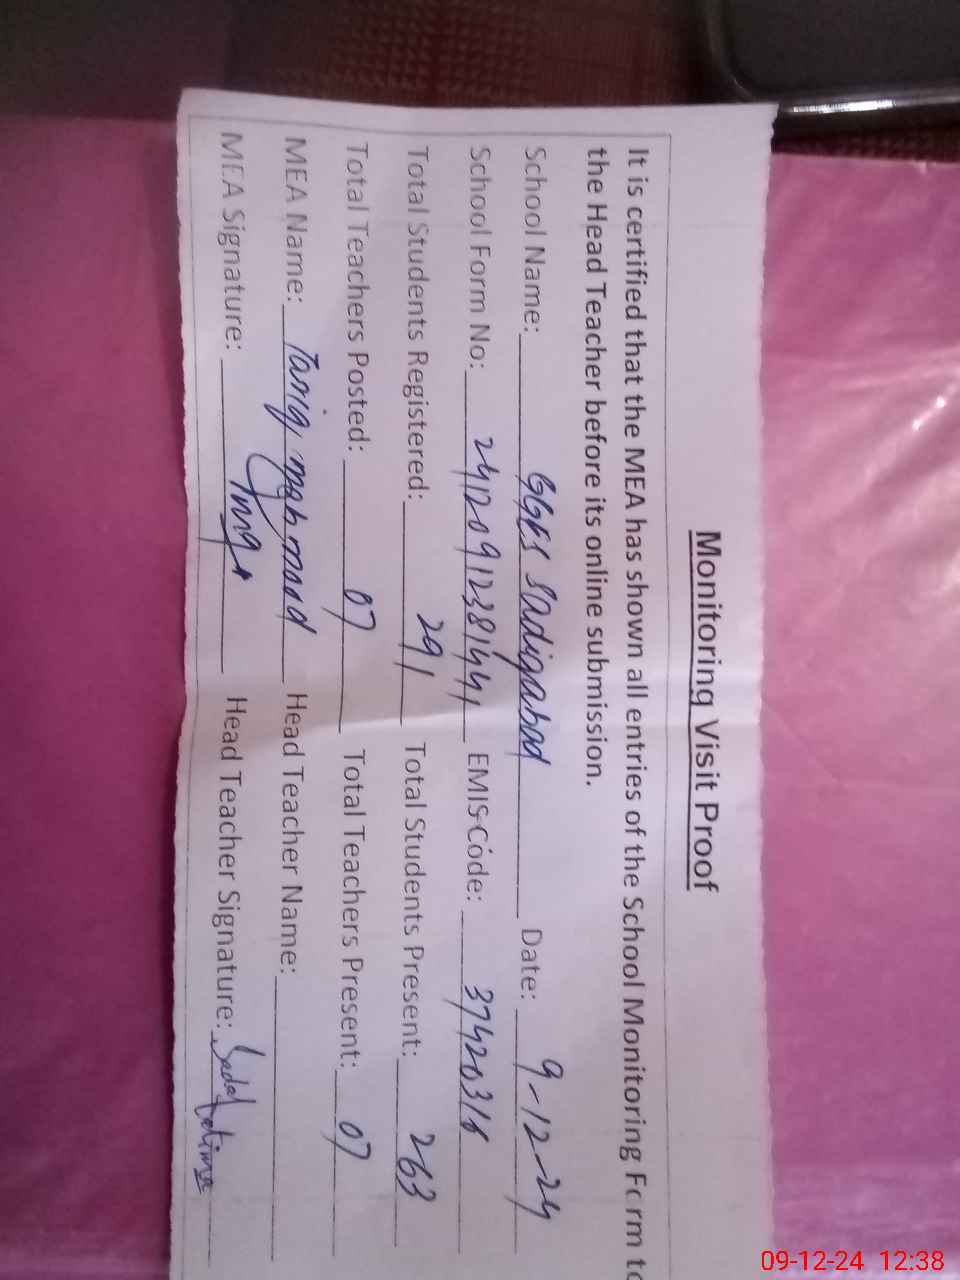 Monitoring Visit Proof
It is certified that the MEA has shown all entries of the School Monitoring Form to
the Head Teacher before its online submission.
School Name: GGES Sadiqabad Date: 9-12-24
School Form No: 24120912381441 EMIS Code: 37420316
Total Students Registered: 291 Total Students Present: 263
Total Teachers Posted: 07 Total Teachers Present: 07
MEA Name: Tariq mahmood Head Teacher Name:
MEA Signature: Head Teacher Signature:
09-12-24 12:38